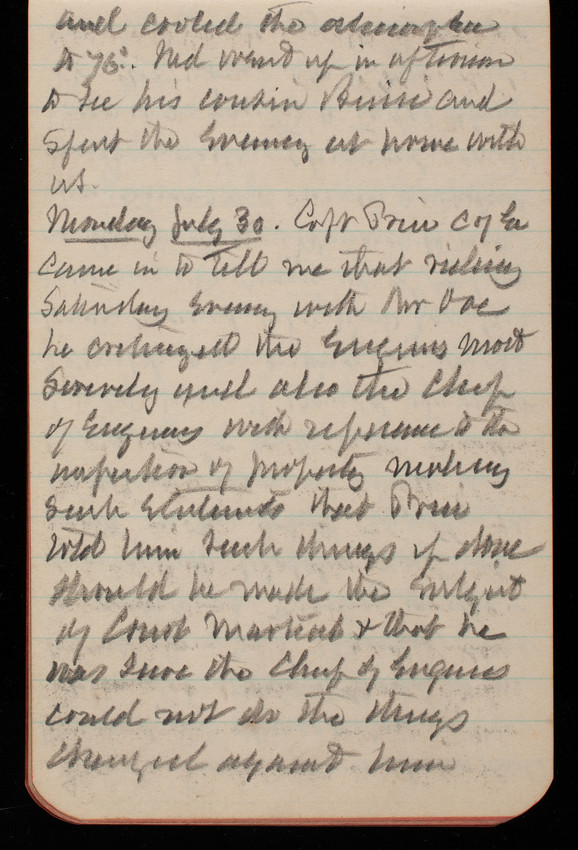 and cooled the atmosphere
to 75°. Ned went up in afternoon
to see his cousin and
spent the Evening at home with
us.
Monday July 30. Capt Price C of En
came in to tell me that riding
Saturday Evening with Mr
he criticized the Engineers most
severely and also the Chief
of Engineers with reference to the
inspection of property making
such statements that Price
told him such things if done
should be made the subject
of Court Martial & that he
was sure the Chief of Engineers
could not do the things
charged against him